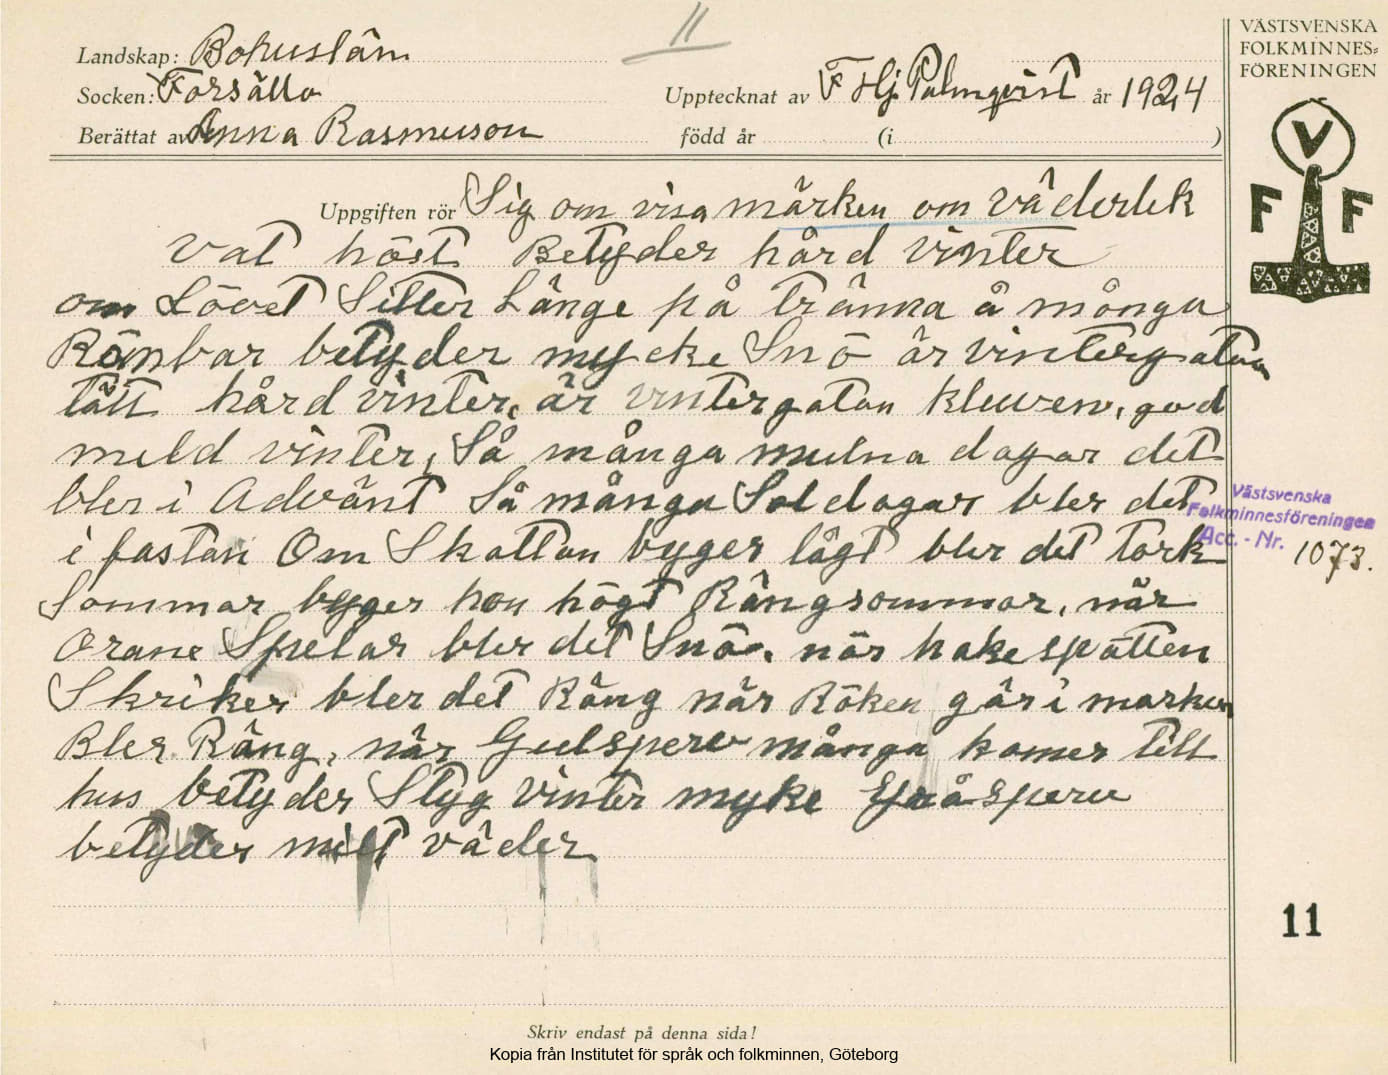 11
VÄSTSVENSKA
FOLKMINNES=
FÖRENINGEN
Landskap: Bohuslän
Socken: Forsälla
Upptecknat av F Hj Palmqvist år 1924
Berättat av Anna Rasmuson född år (i )
V
F F
Uppgiften rör Sig om visa märken om väderlek
vat höst Betyder hård vinter
om Lövet Sitter Länge på tränna å många
Rönbar betyder mycke Snö är vintergatan
tätt hård vinter, är vintergatan kluven, god
mild vinter, Så många mulna dagar det
bler i Advänt Så många Sol dagar bler det
i fastan Om Skattan byger lågt bler det tork
Sommar byger hon högt Rängsommar, när
Orane Spelar bler det Snö, när hakespätten
Skriker bler det Räng när Röken går i marken
Bler Räng, när Gulsperv många komer till
hus betyder Styg vinter myke Gråsperv
betyder milt väder
Västsvenska
Folkminnesföreningen
Acc. - Nr. 1073.
11
Skriv endast på denna sida!
Kopia från Institutet för språk och folkminnen, Göteborg